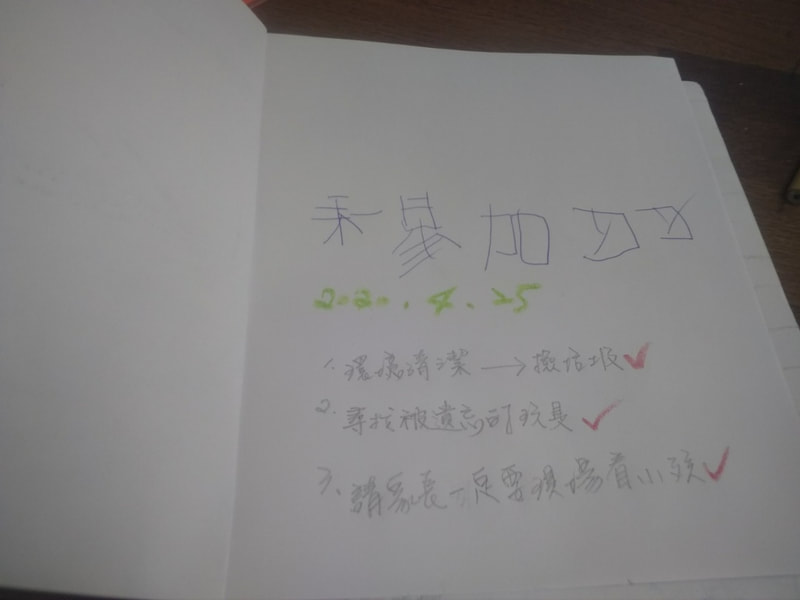 參加
2020.4.25
1.環境清潔→撿垃圾✓
2.尋找被遺忘的玩具✓
3、請家長一定要現場看小孩✓